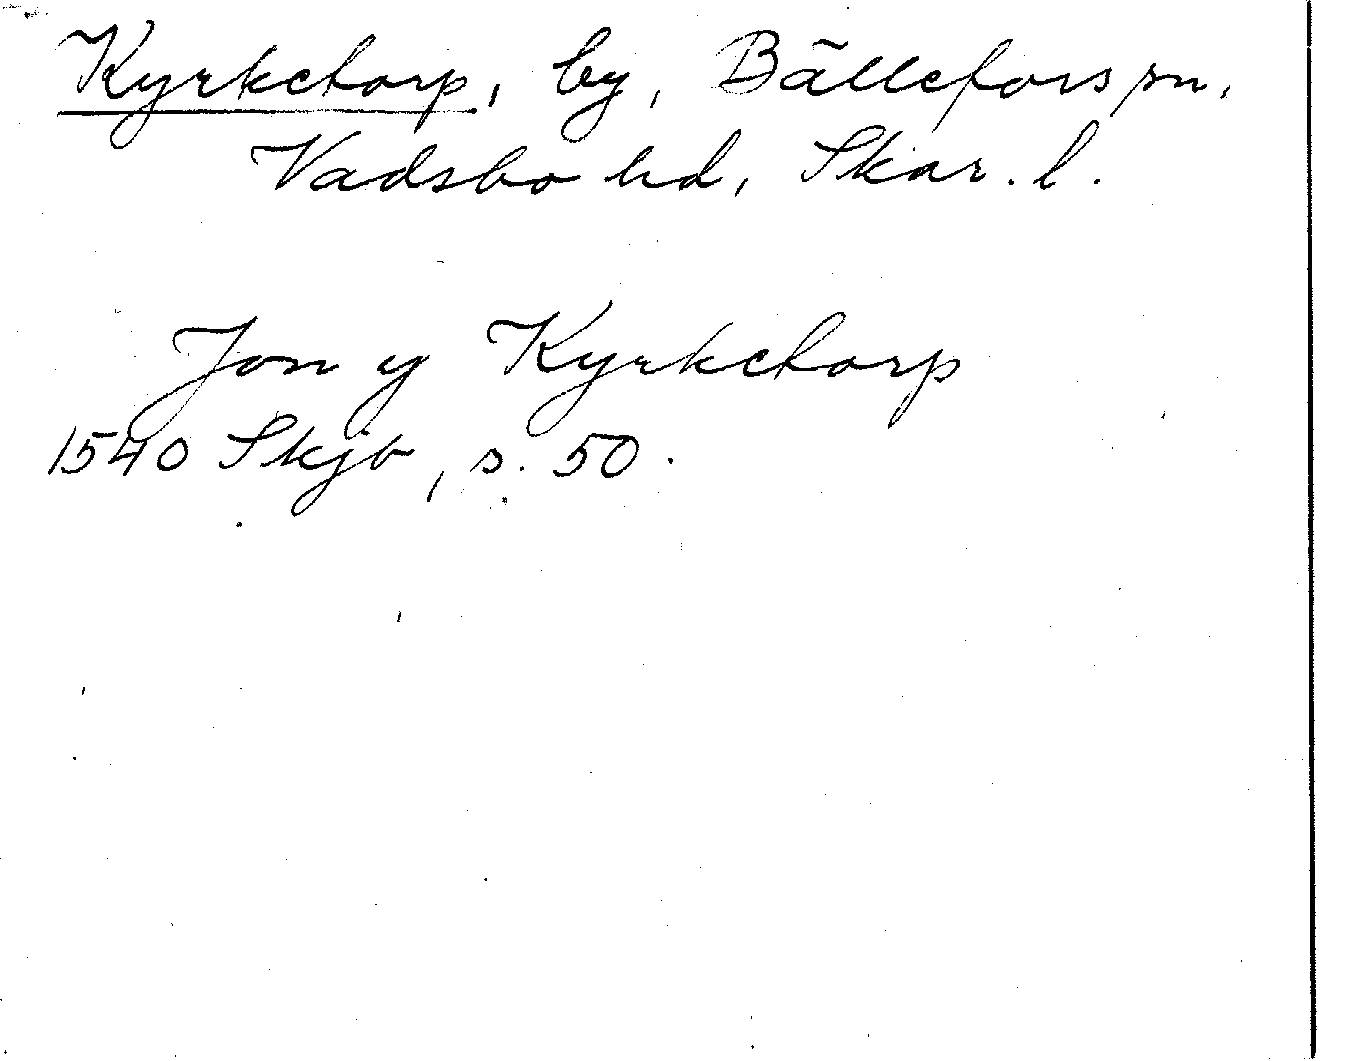 Kyrketorp, by, Bällefors sn,
Vadsbo hd, Skar. l.
Jon y Kyrketorp
1540 Skjb, s. 50.